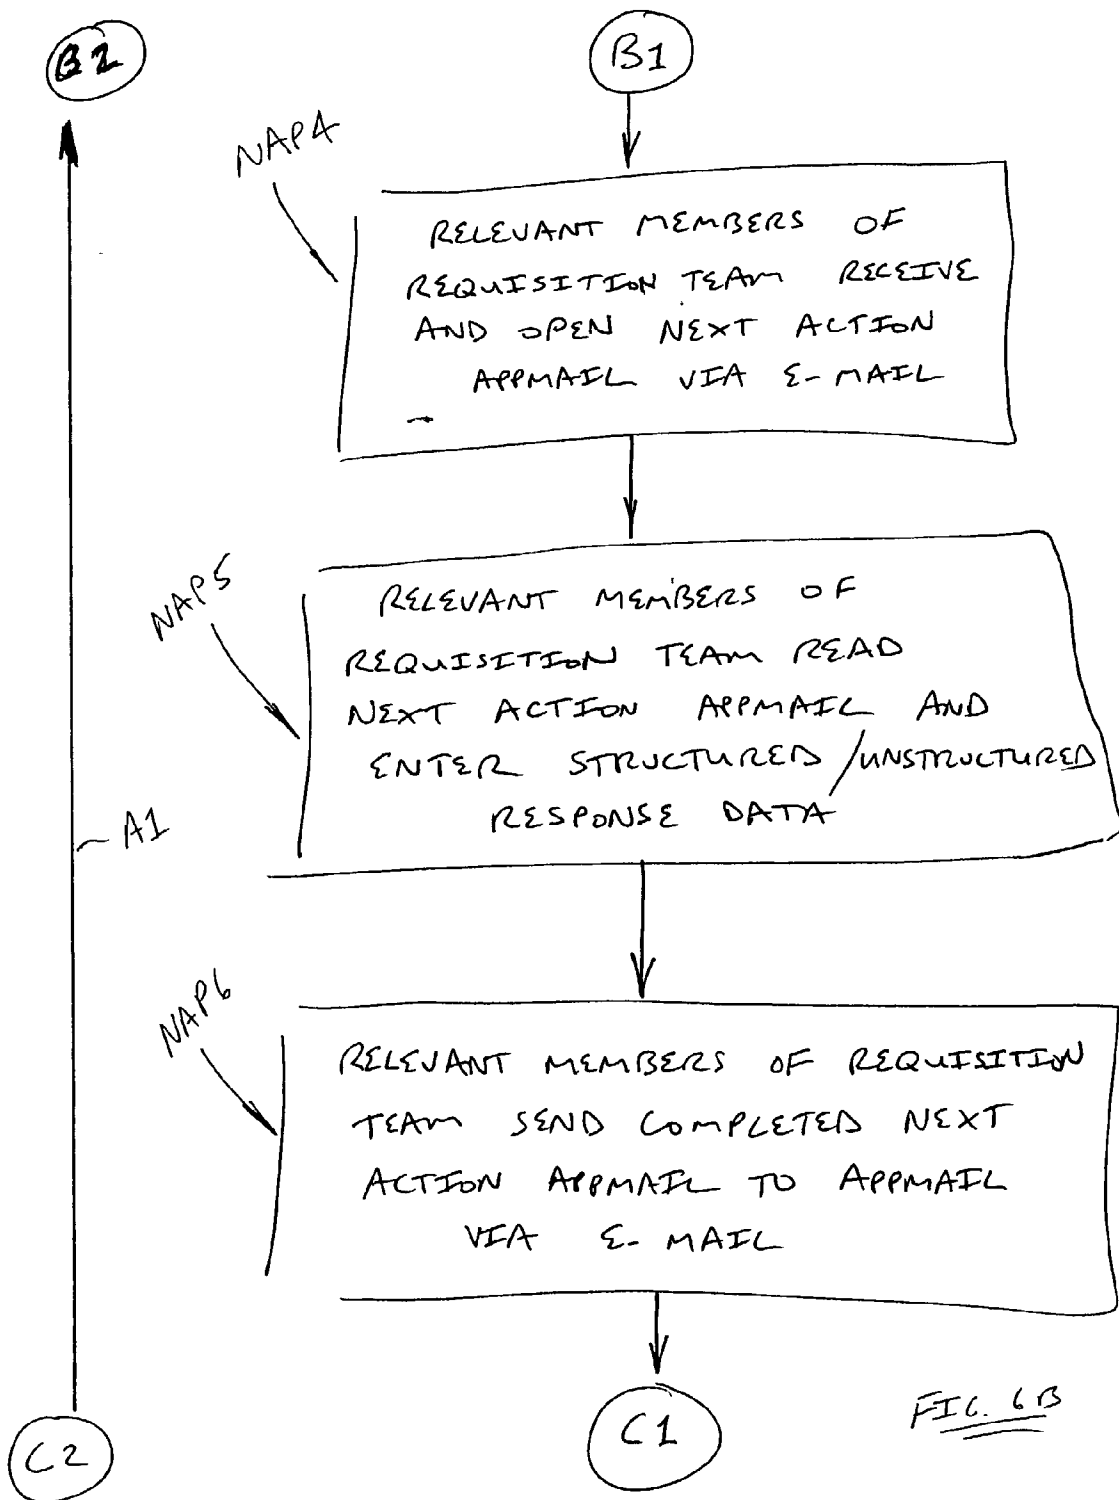 B2
B1
NAP4
RELEVANT MEMBERS OF
REQUISITION TEAM RECEIVE
AND OPEN NEXT ACTION
APPMAIL VIA E-MAIL
NAP5
RELEVANT MEMBERS OF
REQUISITION TEAM READ
NEXT ACTION APPMAIL AND
ENTER STRUCTURED/UNSTRUCTURED
RESPONSE DATA
A1
NAP6
RELEVANT MEMBERS OF REQUISITION
TEAM SEND COMPLETED NEXT
ACTION APPMAIL TO APPMAIL
VIA E-MAIL
C2
C1
FIG. 6B